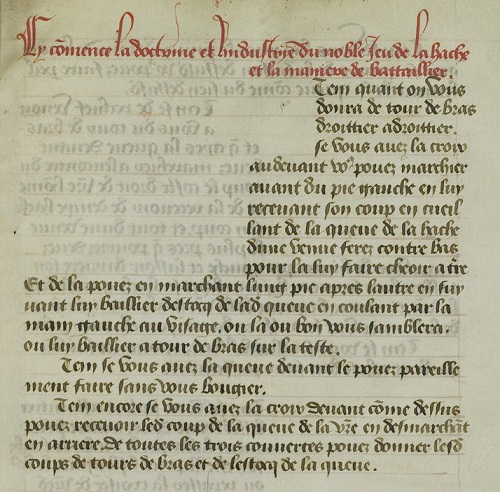 Cy cõmence la doctrine et lindustrie du noble Jeu de la hache
et la maniere de battaillier.
Tem quant on vous
donra de tour de bras
droittier a droittier.
se vous auez la croix
au deuant vo9 pouez marchier
auant du pie gauche en luy
receuant son coup en cueil
lant de la queue de la hache
dune venue ferez contre bas
pour la luy faire cheoir a tr̃e
Et de la pouez en marchant lung pie apres lautre en suy
uant luy baillier destocq de lad queue en coulant par la
main gauche au visage, ou la ou bon vous samblera.
ou luy baillier a tour de bras sur la teste.
Tem se vous auez la queue deuant le pouez pareille
ment faire sans vous bougier.
Tem encore se vous auez la croix deuant cõme dessus
pouez receuoir led coup de la queue de la vr̃e en desmarchãt
en arriere, de toutes les trois couuertes pouez donner lesd
coups de tours de bras et de lestocq de la queue.